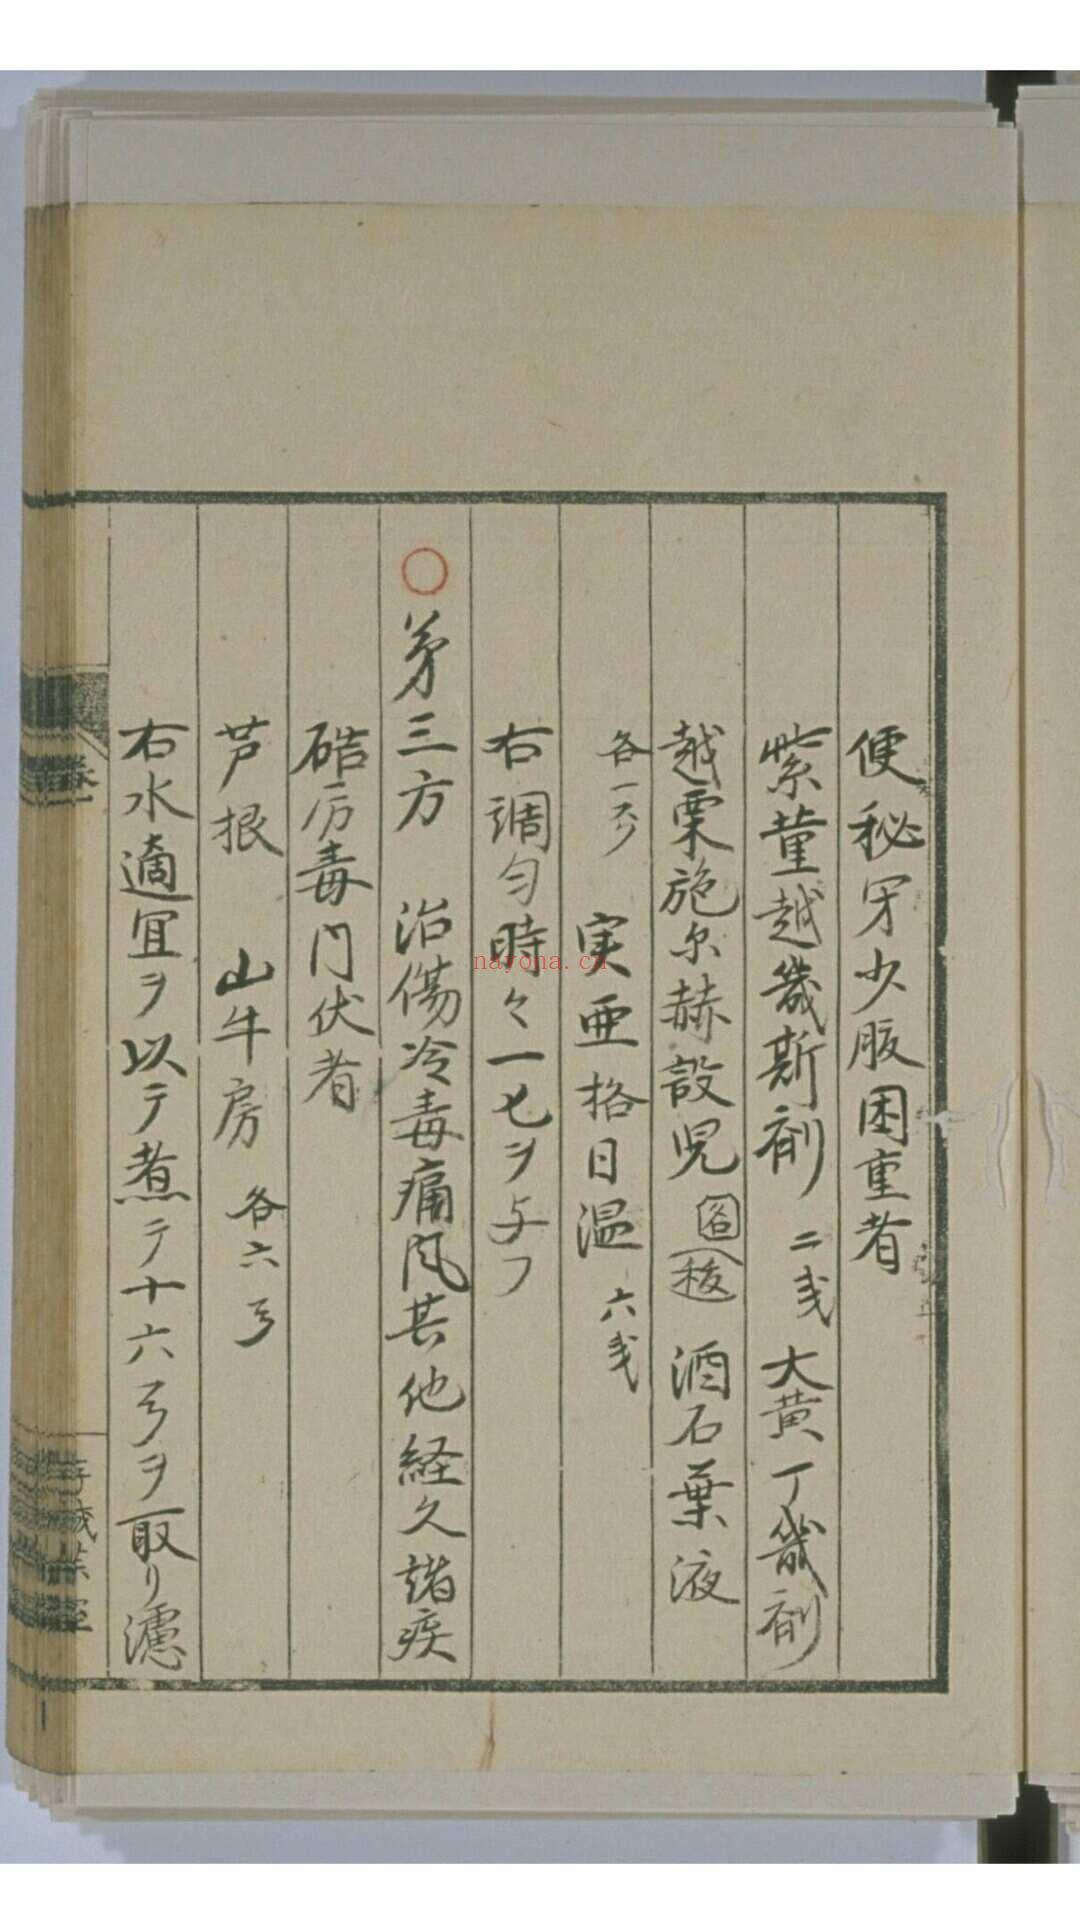 便秘牙少腹困重者
紫菫越幾斯剤 二戔 大黄丁幾剤
越栗施尓赫設児 各 稜 酒石葉液
各一 実亜格日温 六戔
右調匀時々一匕ヲ与フ
○第三方 治傷冷毒痛風其他経久諸疾
硞厉毒門伏者
芦根 山牛房 各六
右水適宜ヲ以テ煮テ十六ヲ取リ濾
nayona.cn
巻一